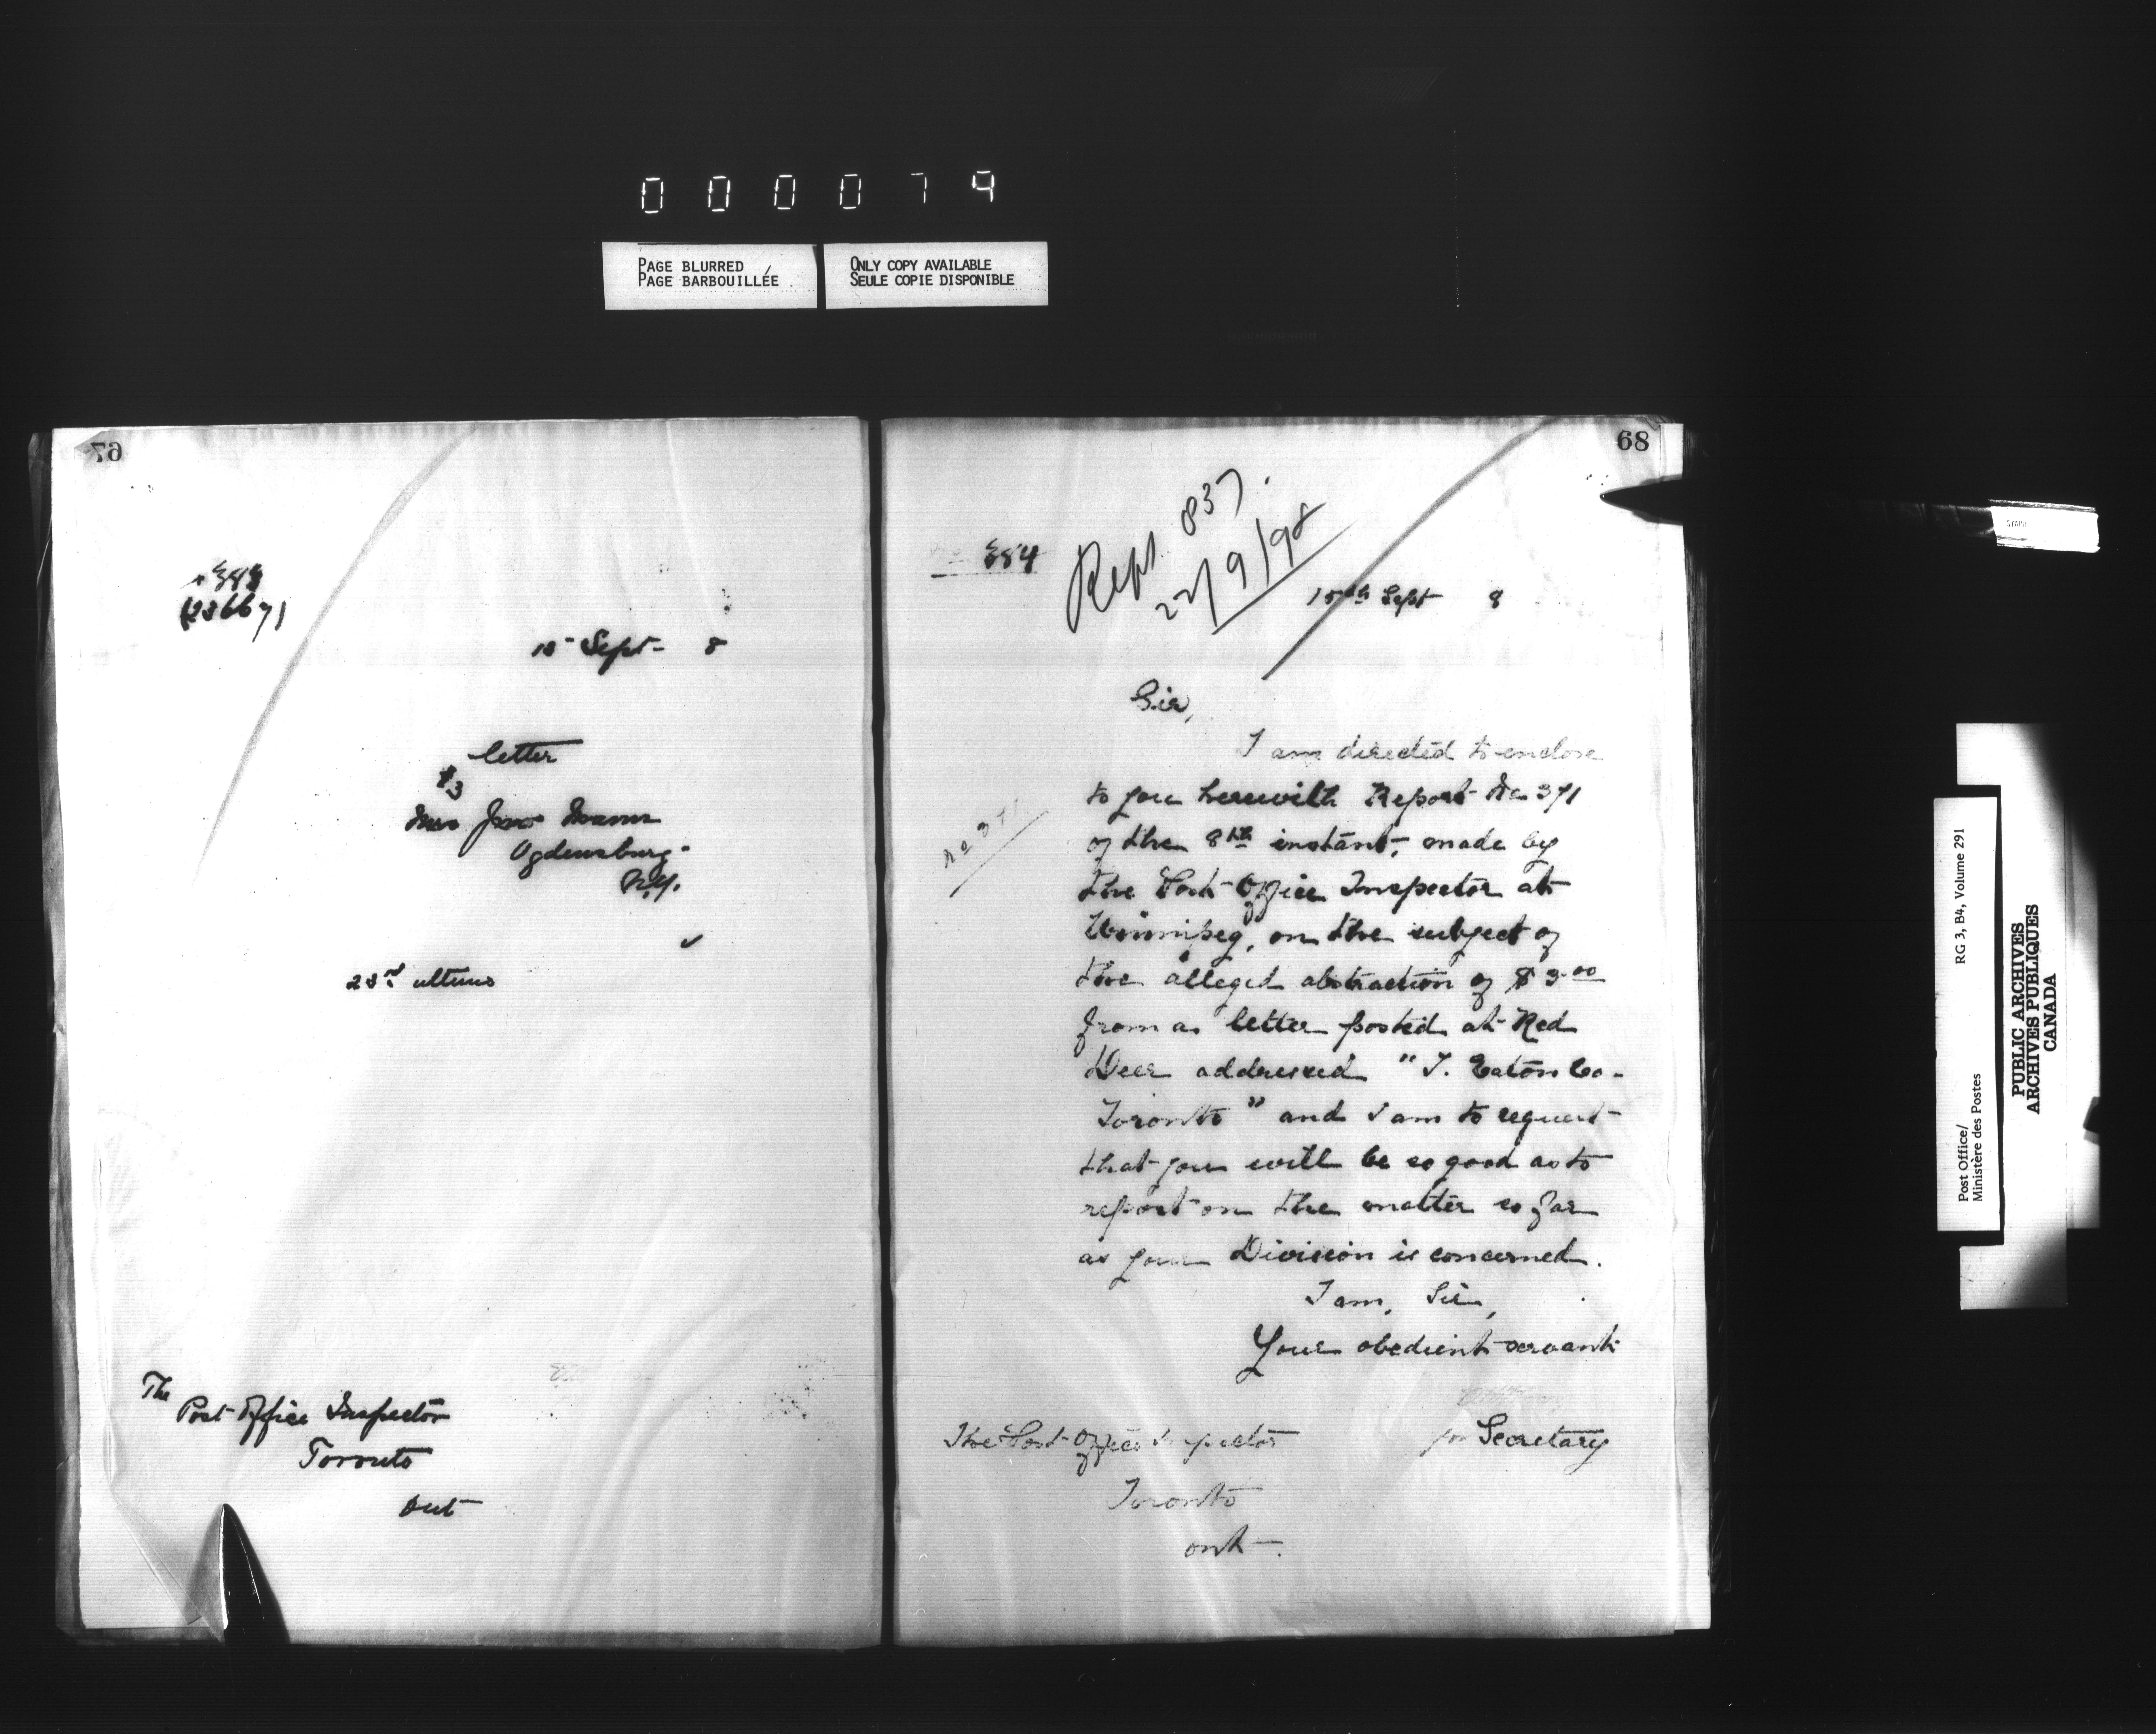 000079
PAGE BLURRED
PAGE BARBOUILLÉE
ONLY COPY AVAILABLE
SEULE COPIE DISPONIBLE
67
383
(236671
15 Sept 8
letter
$3
Mrs
Ogdensburg
N.Y.
23rd ultimo
The
Post Office Inspector
Toronto
Ont
68
No 384
Rept. 837.
22/9/98
15th Sept 8
Sir,
I am directed to enclose
to you herewith Report No 371
No 371
of the 8th instant, made by
the Post Office Inspector at
Winnipeg, on the subject of
the alleged abstraction of $3.00
from a letter posted at Red
Deer addressed "T. Eaton Co-
Toronto" and I am to request
that you will be so good as to
report on the matter so far
as your Division is concerned.
I am, Sir,
Your obedient servant
for Secretary
The Post Office Inspector
Toronto
Ont.
Post Office/
Ministère des Postes
RG 3, B4, Volume 291
PUBLIC ARCHIVES
ARCHIVES PUBLIQUES
CANADA